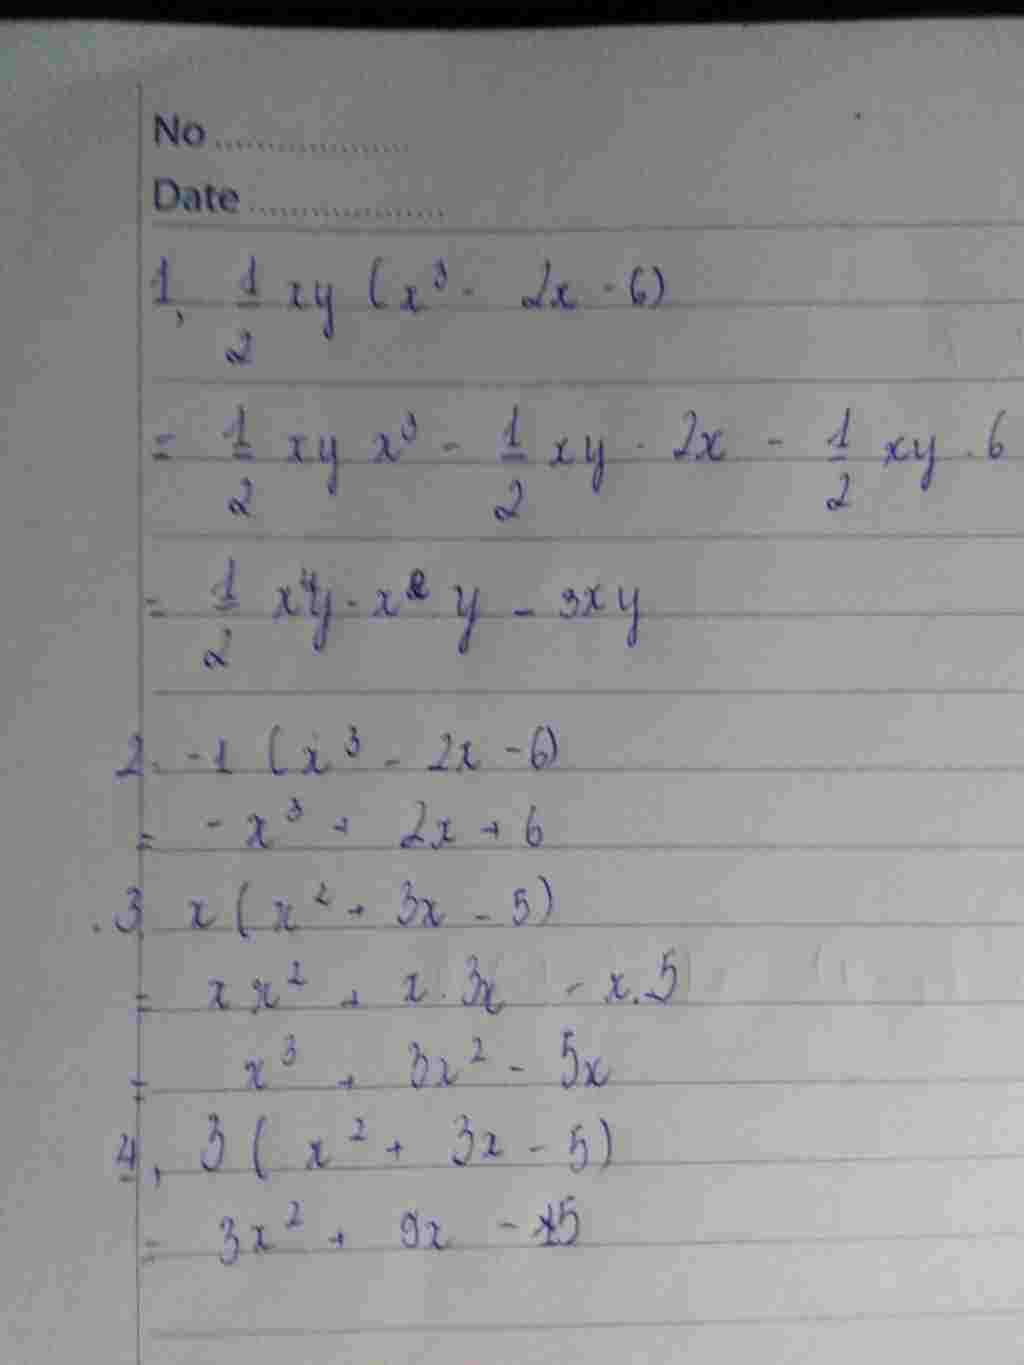 No ..................
Date ..................
1, 1/2 xy (x³ - 2x - 6)
= 1/2 xy x³ - 1/2 xy . 2x - 1/2 xy . 6
= 1/2 x⁴y - x² y - 3xy
2. -1 (x³ - 2x - 6)
= - x³ + 2x + 6
.3 x (x² + 3x - 5)
= x x² + x . 3x - x.5
= x³ + 3x² - 5x
4, 3 ( x² + 3x - 5)
= 3x² + 9x - 15